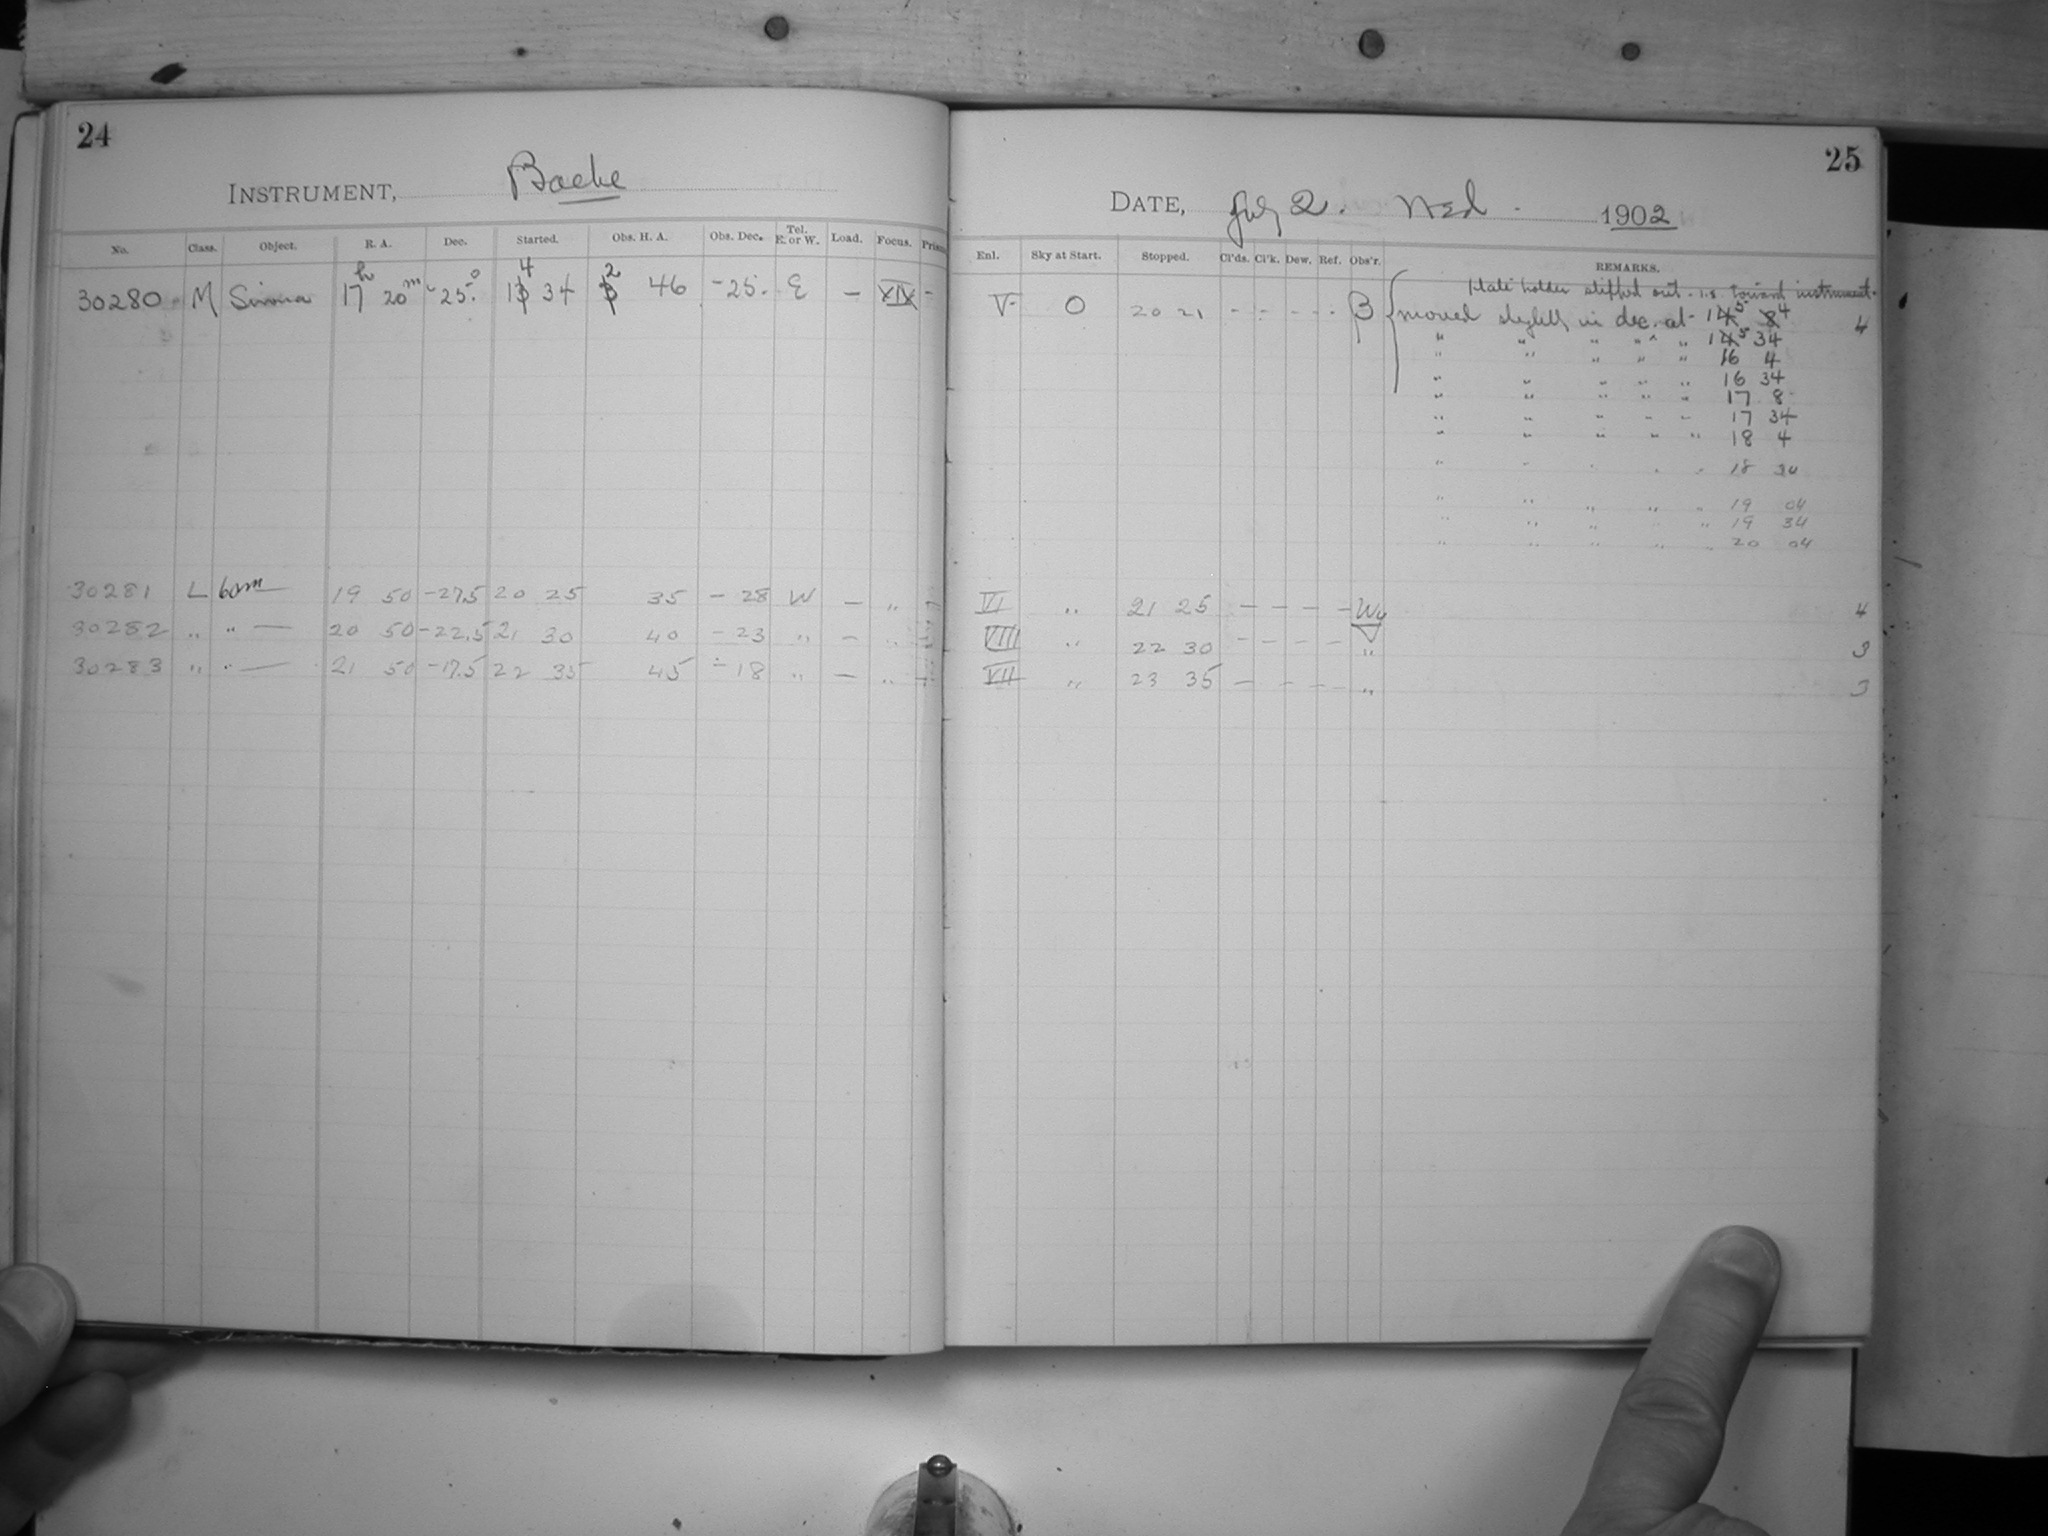 24
INSTRUMENT, Bache
No. Class. Object. R. A. Dec. Started. Obs. H. A. Obs. Dec. Tel. E. or W. Load. Focus. Prism
30280 M 17h 20m -25.° 14 34 2 46 -25. E — XIX -
30281 L 60m — 19 50 -27.5 20 25 35 - 28 W — "
30282 " " — 20 50 -22.5 21 30 40 - 23 " — "
30283 " " — 21 50 -17.5 22 35 45 - 18 " — "
25
DATE, July 2. Wed. 1902
Enl. Sky at Start. Stopped. Cl'ds. Cl'k. Dew. Ref. Obs'r. REMARKS.
Plate holder slipped out - i.e. toward instrument.
V O 20 21 - - - - B moved slightly in dec. at 15 4 4
" " " " " 15 34
" " " " " 16 4
" " " " " 16 34
" " " " " 17 8
" " " " " 17 34
" " " " " 18 4
" " " " " 18 34
" " " " " 19 04
" " " " " 19 34
" " " " " 20 04
VI " 21 25 — — — — Wy 4
VIII " 22 30 — — — — " 3
VII " 23 35 — — — — " 3